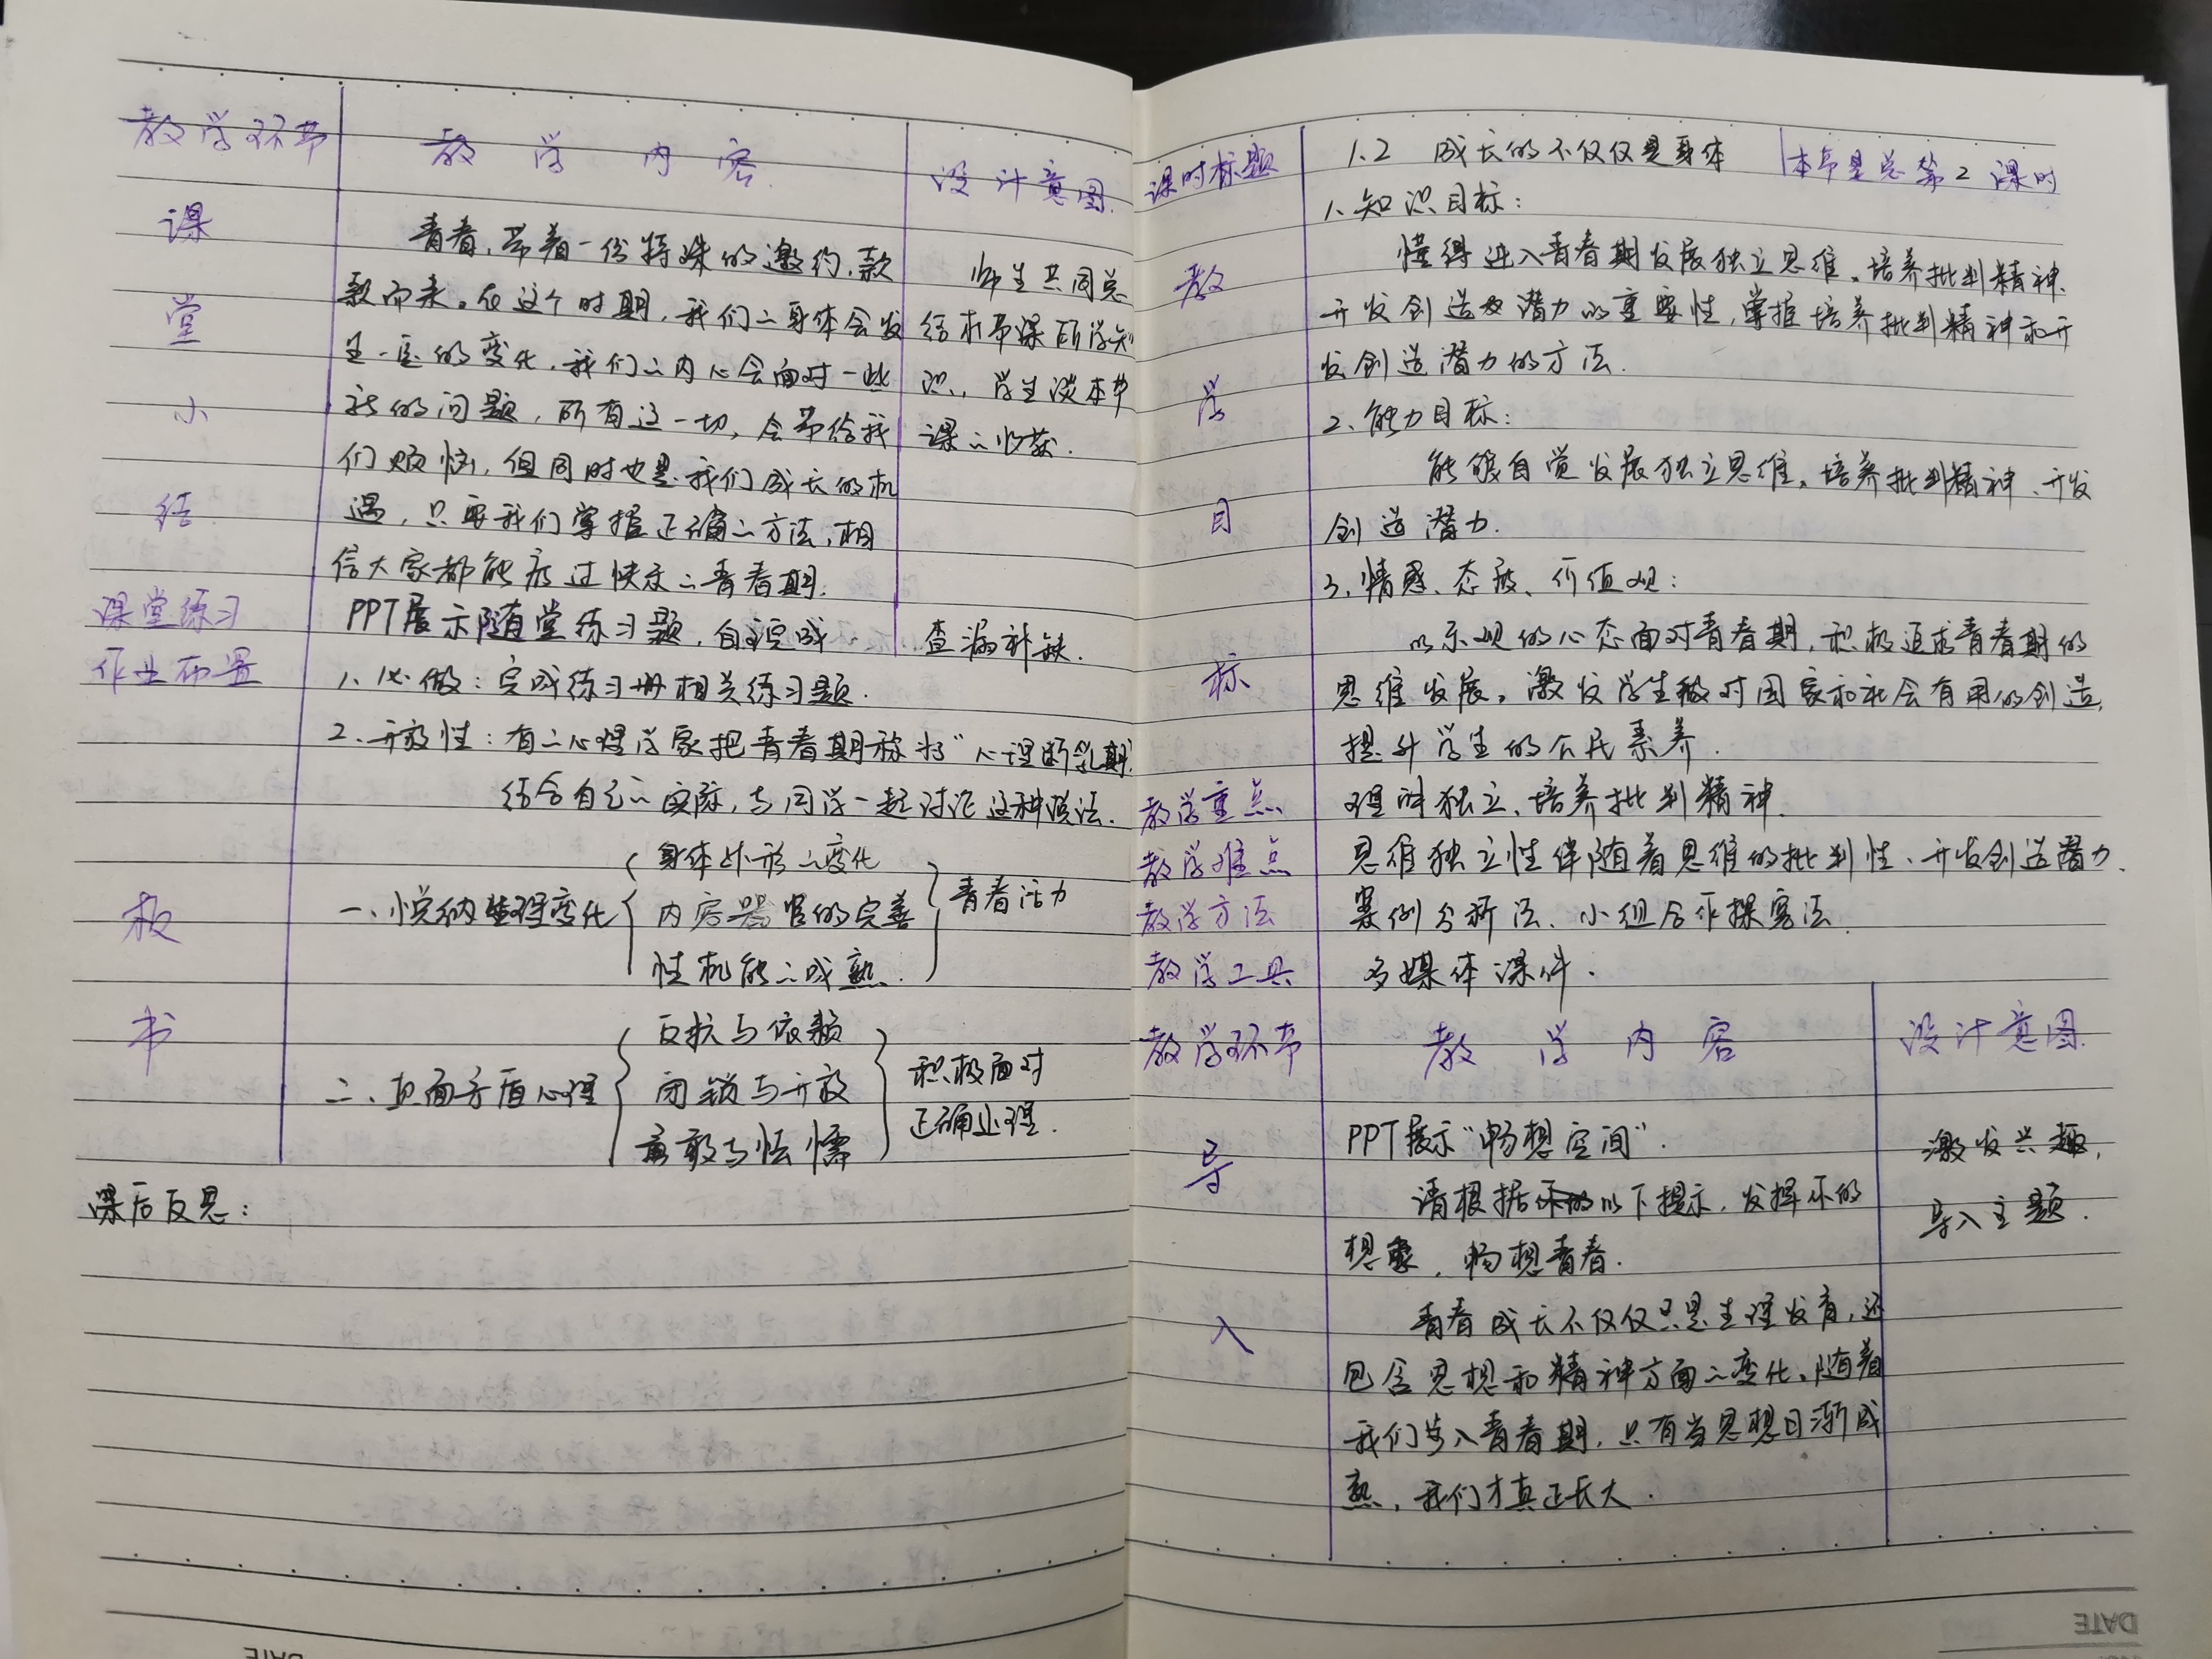 教学环节 教学内容 设计意图
课堂小结
青春，带着一份特殊的邀约，款
款而来。在这个时期，我们的身体会发
生一定的变化，我们的内心会面对一些
新的问题，所有这一切，会带给我
们烦恼，但同时也是我们成长的机
遇，只要我们掌握正确的方法，相
信大家都能度过快乐的青春期.
师生共同总
结本节课所学知
识，学生谈本节
课的收获.
课堂练习
PPT展示随堂练习题，自主完成
查漏补缺.
作业布置
1、必做：完成练习册相关练习题.
2、开放性：有的心理学家把青春期称为"心理断乳期"
结合自己的实际，与同学一起讨论这种说法.
板书
一、悦纳生理变化
身体外形的变化
内容器官的完善
性机能的成熟.
青春活力
二、直面矛盾心理
反抗与依赖
闭锁与开放
勇敢与怯懦
积极面对
正确处理.
课后反思：
课时标题 1.2 成长的不仅仅是身体 本节是总第2课时
教学目标
1、知识目标：
懂得进入青春期发展独立思维、培养批判精神、
开发创造潜力的重要性，掌握培养批判精神和开
发创造潜力的方法.
2、能力目标：
能够自觉发展独立思维、培养批判精神、开发
创造潜力.
3、情感、态度、价值观：
以乐观的心态面对青春期，积极追求青春期的
思维发展，激发学生做对国家和社会有用的创造，
提升学生的公民素养.
教学重点 理解独立、培养批判精神.
教学难点 思维独立性伴随着思维的批判性、开发创造潜力.
教学方法 案例分析法、小组合作探究法
教学工具 多媒体课件.
教学环节 教学内容 设计意图.
导入
PPT展示"畅想空间".
请根据以下提示，发挥你的
想象，畅想青春.
青春成长不仅仅只是生理发育，还
包含思想和精神方面的变化，随着
我们步入青春期，只有当思想日渐成
熟，我们才真正长大.
激发兴趣，
导入主题.
DATE
DATE